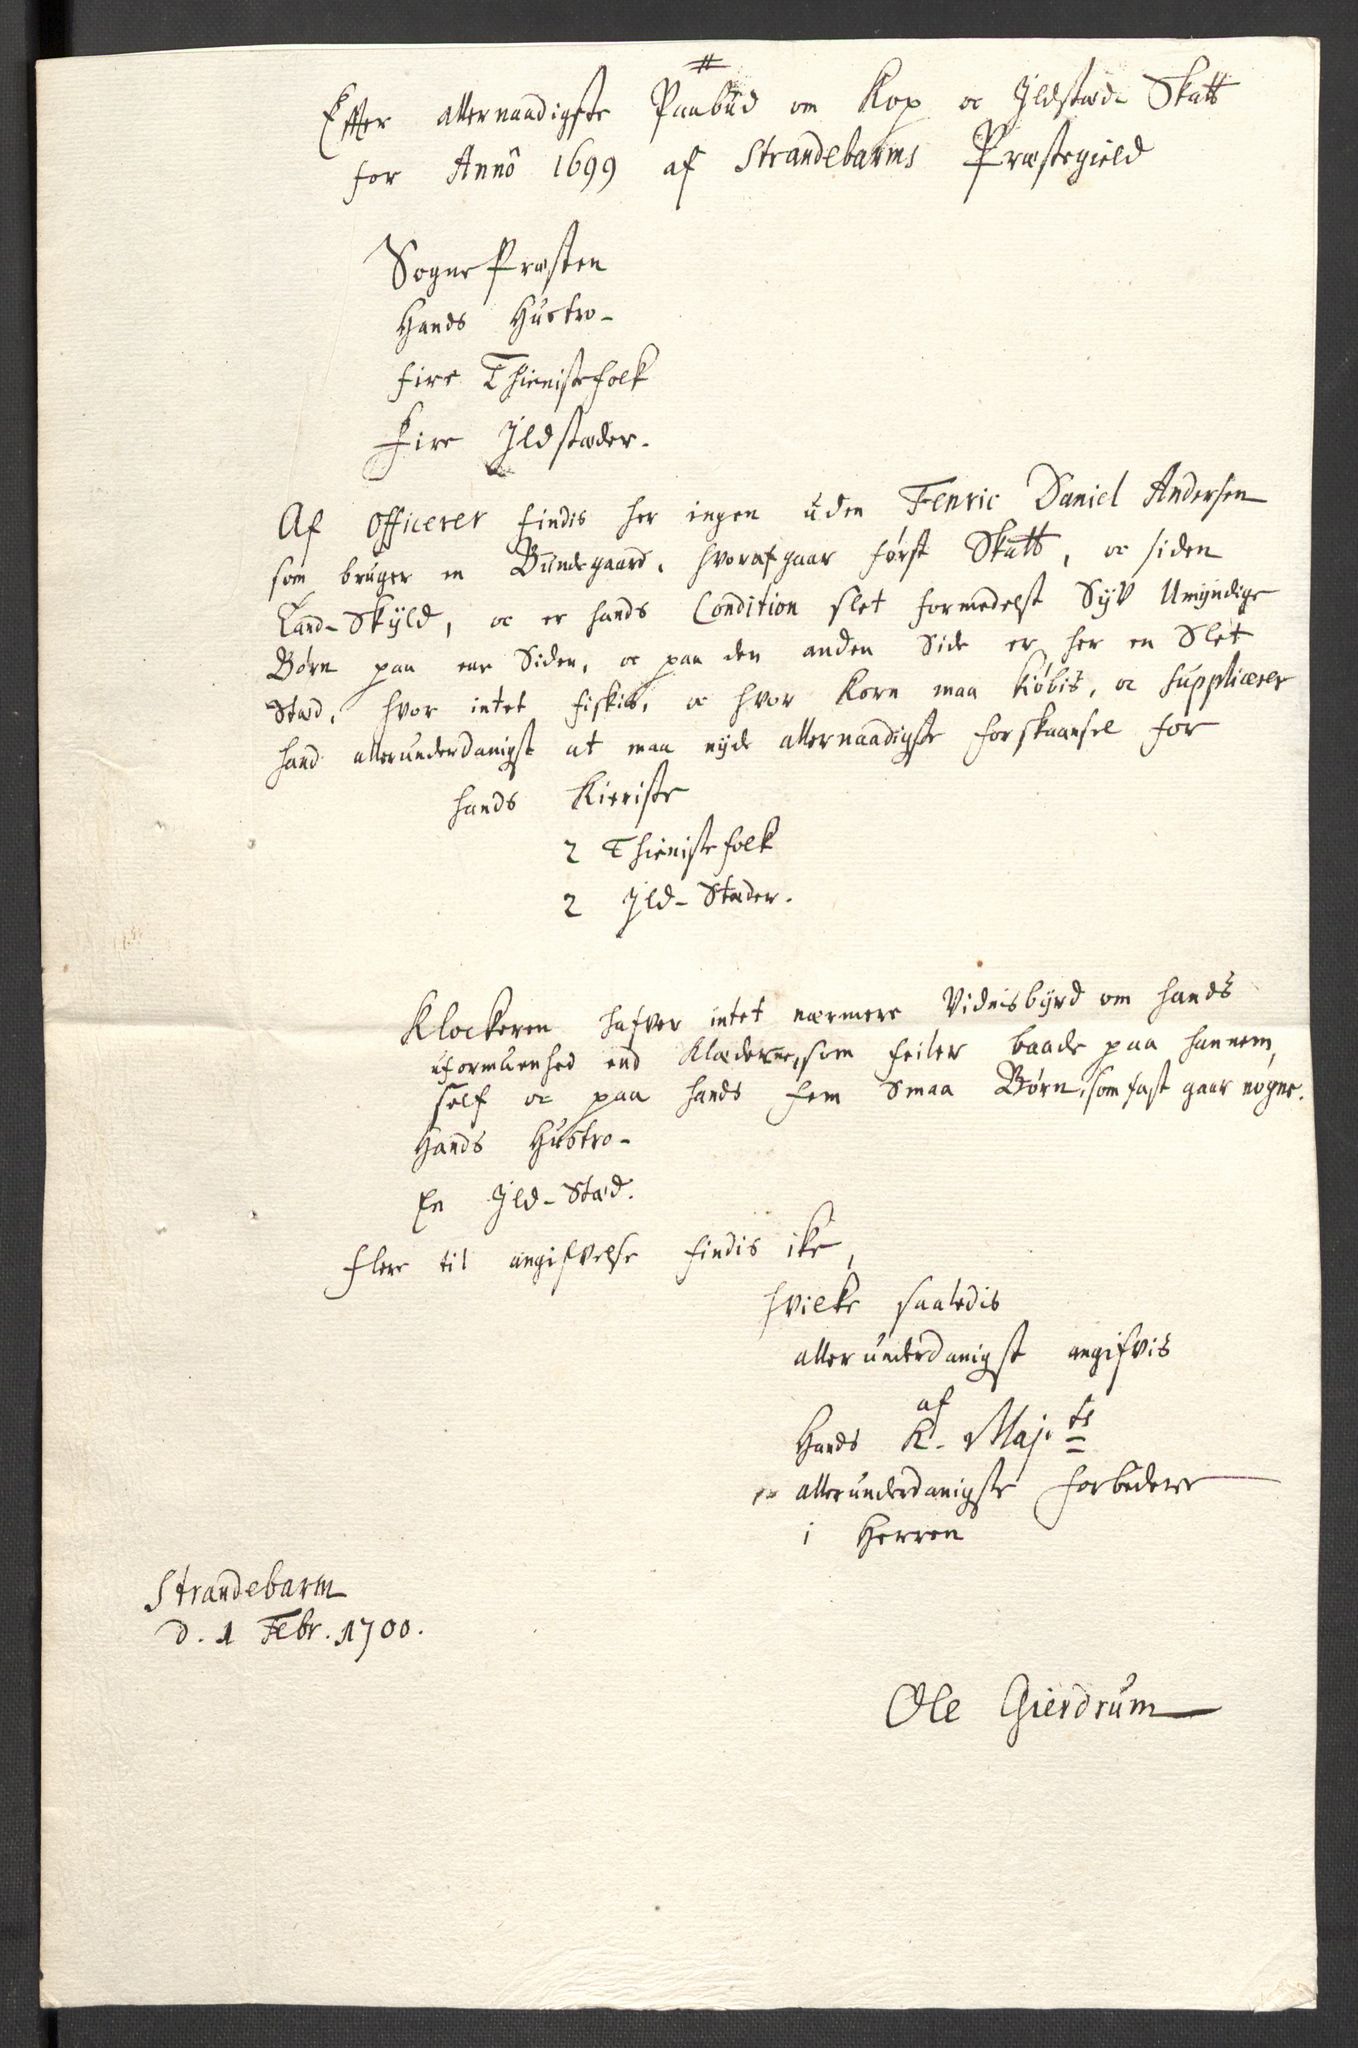 Efter allernaadigste Paabud om Kop oc Ildsted Skatt
for Annô 1699 af Strandebarms Præstegield
Sogne Præsten
Hands Hustro
fire Thienistefolk
Fire Ildstæder.
Af Officerer findis her ingen uden Fenric Daniel Andersen
som bruger en Bundegaard, hvoraf gaar først Skatt, oc siden
Land-Skyld, oc er hands Condition slet formedelst Syv Umyndige
Børn paa ene Siden, oc paa den anden Side er her en Slet
Stæd, hvor intet fiskis, oc hvor Korn maa kiøbis, oc supplicerer
hand allerunderdanigst at maa nyde allernaadigste forskaansel for
hands Kieriste
2 Thienistefolk
2 Ild-Stæder.
Klockeren hafver intet nærmere Vidnisbyrd om hands
uformuenhed end Klæderne, som feiler baade paa hannem
self oc paa hands fem Smaa Børn, som fast gaar nøgne.
Hands Hustro
En Ild-Stæd.
flere til angifvelse findis ike,
hvilke saaledis
allerunderdanigst angifvis
af
Hands K. Maj.ts
allerunderdanigste forbedere
i Herren
Strandebarm
d. 1 Febr. 1700.
Ole Gierdrum